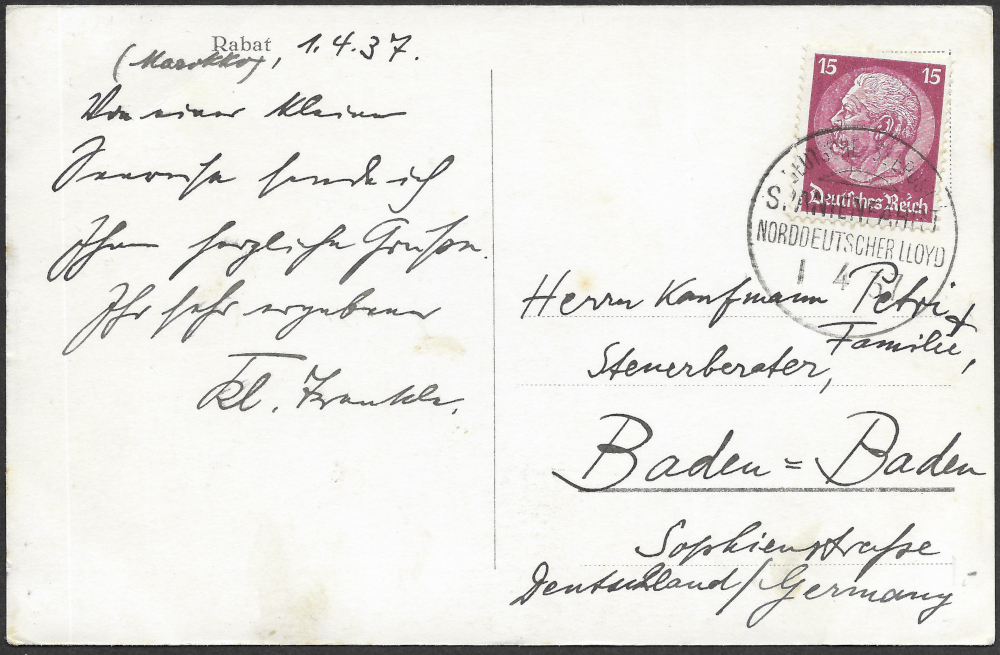 Rabat, 1.4.37.
(Marokko)
Von einer kleinen
Seereise sende ich
Ihnen herzliche Grüsse.
Ihr sehr ergebener
Kl. Franke.
15 15
Deutsches Reich
DEUTSCHE
SPANIENFAHRT
NORDDEUTSCHER LLOYD
1 4 37
Herrn Kaufmann Petri &
Familie,
Steuerberater,
Baden=Baden
Sophienstraße
Deutschland/Germany